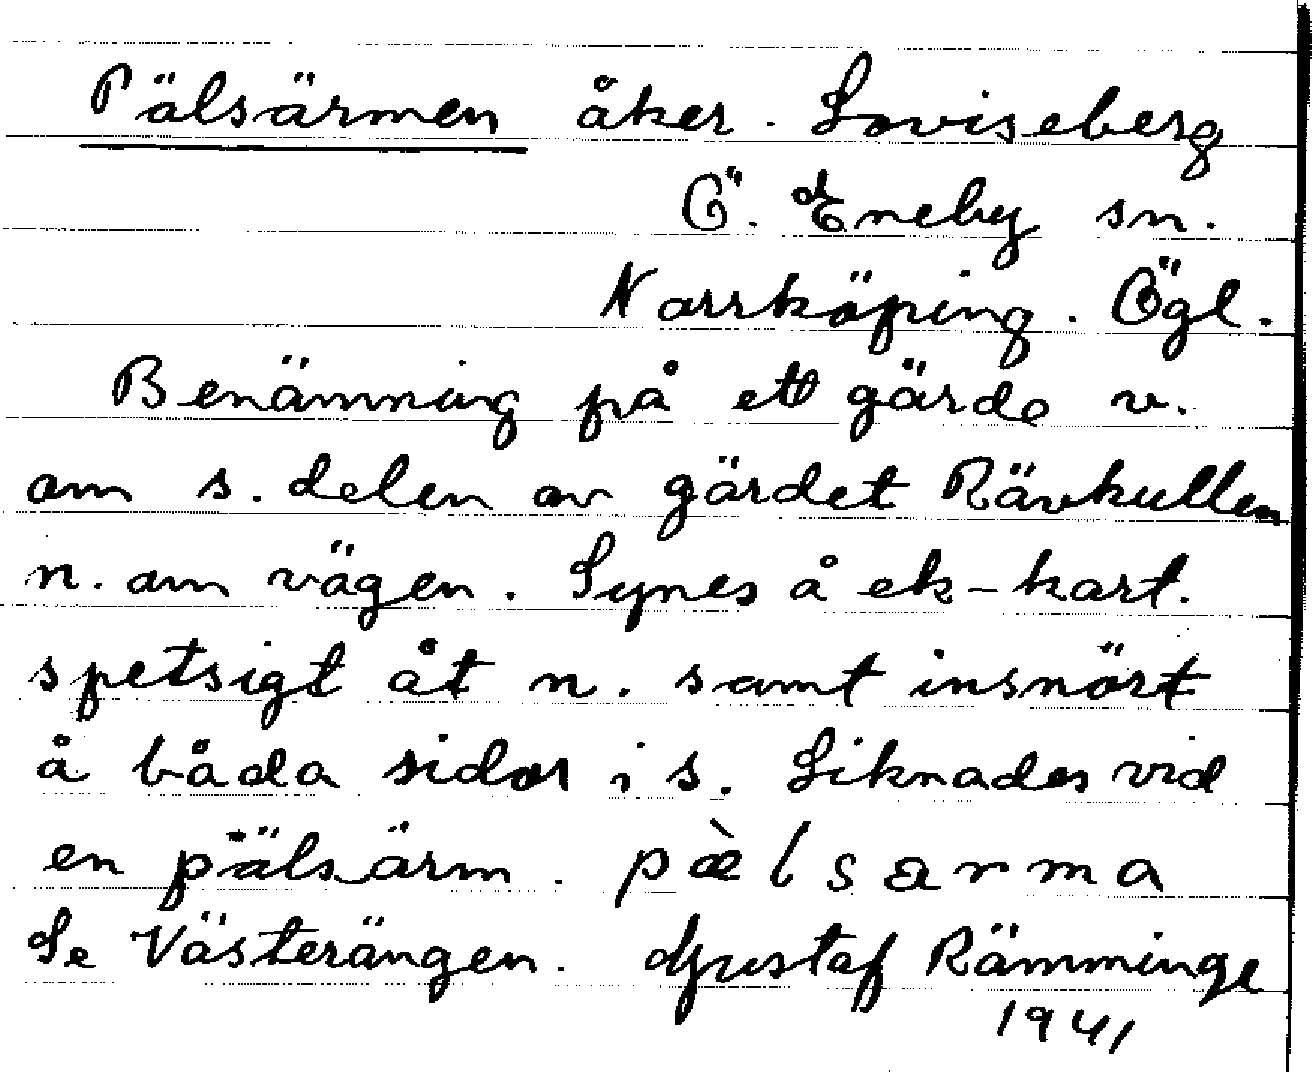 Pälsärmen åker. Loviseberg
Ö. Eneby sn.
Norrköping. Ögl.
Benämning på ett gärde v.
om s. delen av gärdet Rävkullen
n. om vägen. Synes å ek-kart.
spetsigt åt n. samt insnört
å båda sidor i s. Liknades vid
en pälsärm. pæ̀lsarma
Se Västerängen. Gustaf Rämminge
1941